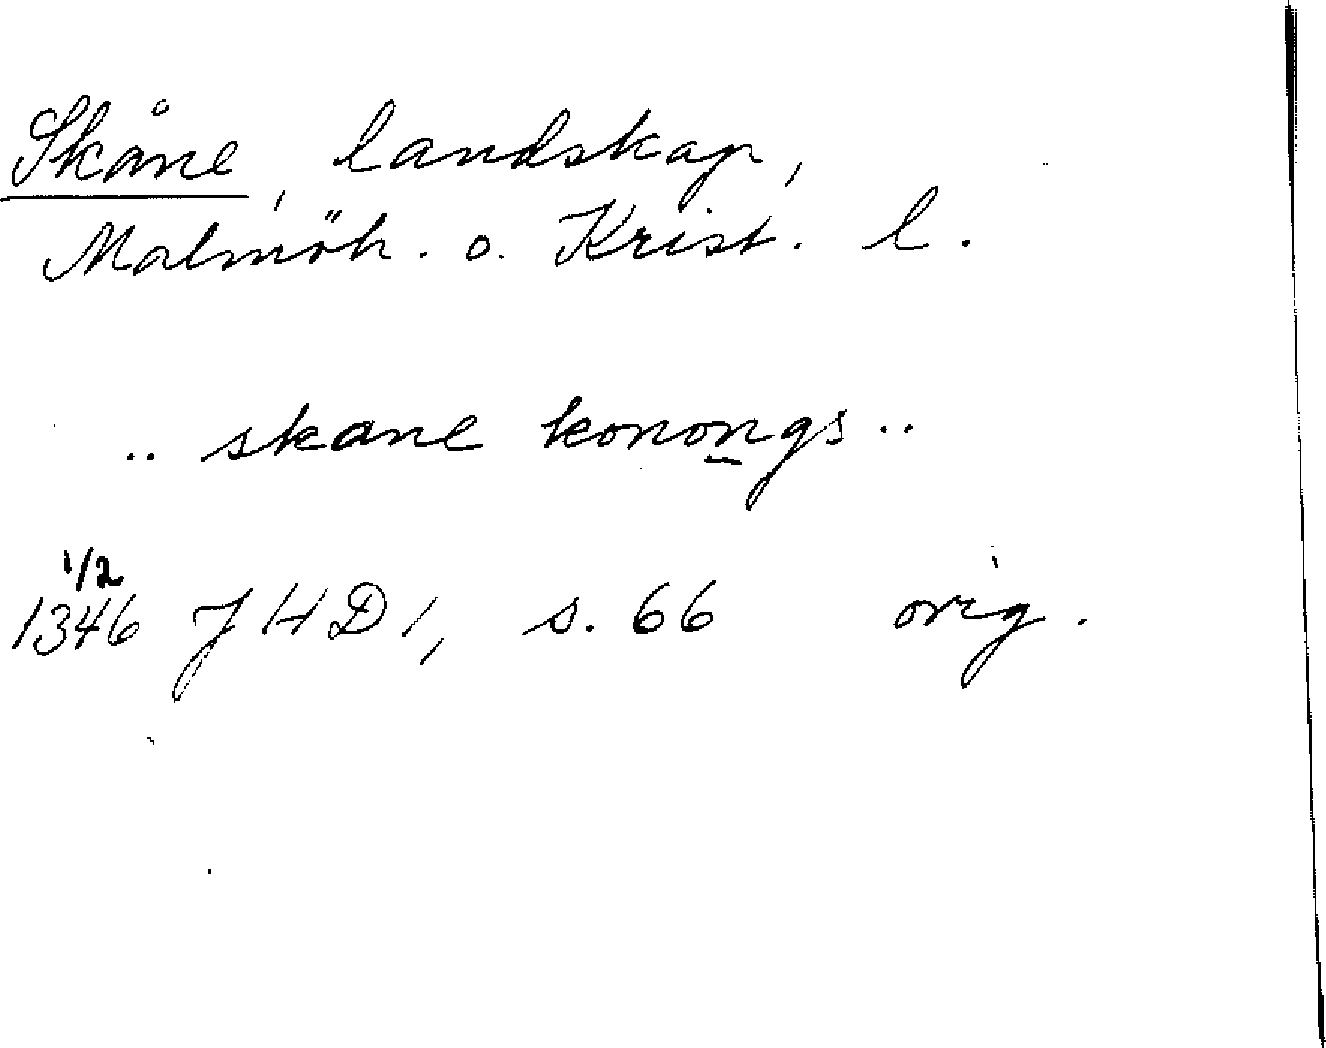 Skåne, landskap,
Malmöh. o. Krist. l.
.. skane konongs ..
1/2
1346 JHD 1, s. 66 orig.